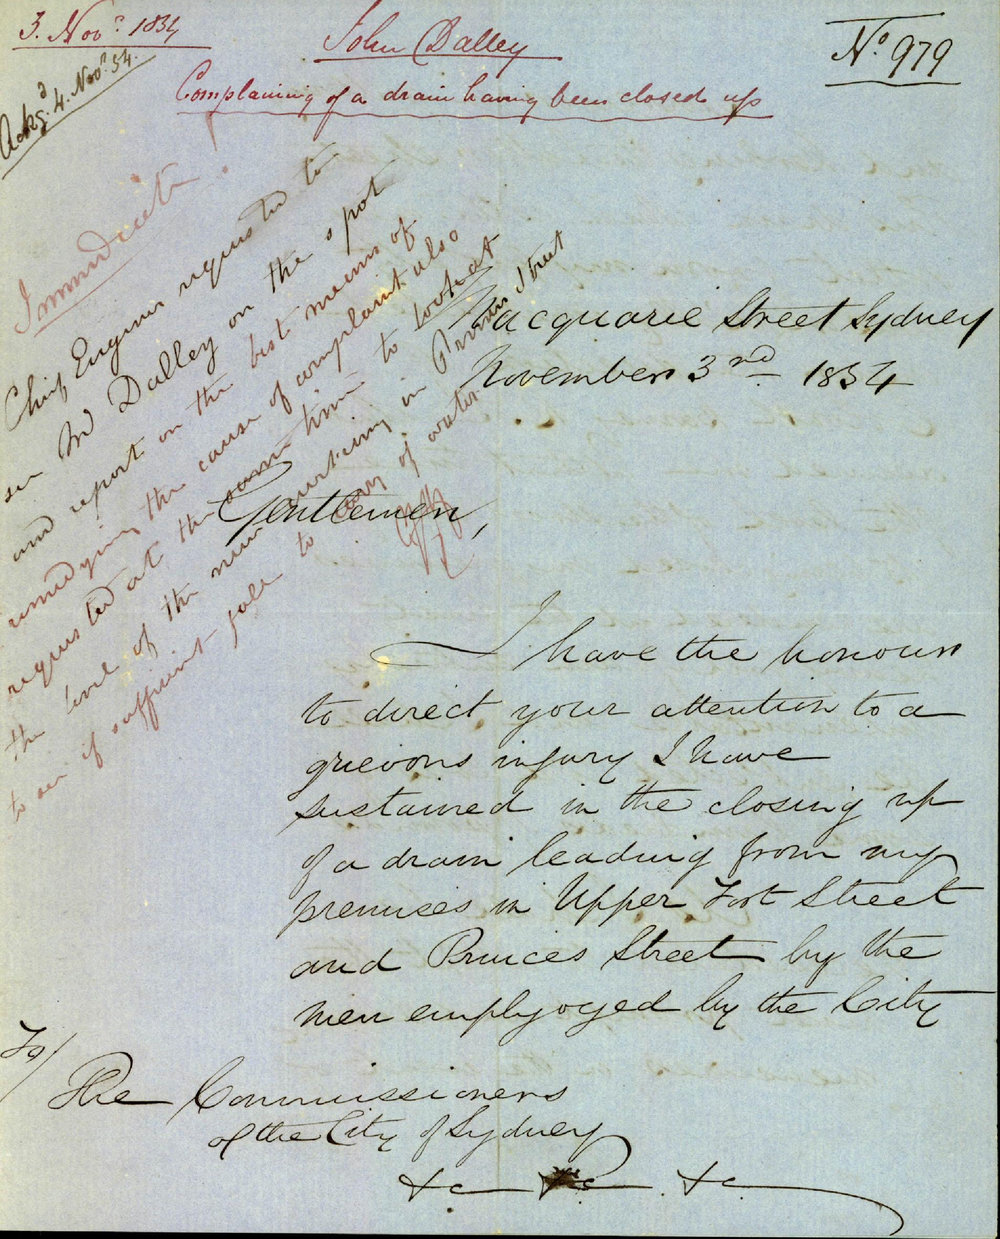 3. Novr. 1854
John Dalley
No 979
Ackgd. 4. Novr. 54.
Complaining of a drain having been closed up
Immediate
Chief Engineer requested to
see Mr Dalley on the spot
and report on the best means of
remedying the cause of complaint also
requested at the same time to look at
the level of the new guttering in Princes Street
to see if sufficient fall to carry of water
Macquarie Street Sydney
November 3rd 1854
Gentlemen,
I have the honour
to direct your attention to a
grievous injury I have
sustained in the closing up
of a drain leading from my
premises in Upper Fort Street
and Princes Street by the
men employoyed by the City
To/
The Commissioners
of the City of Sydney
&c &c &c